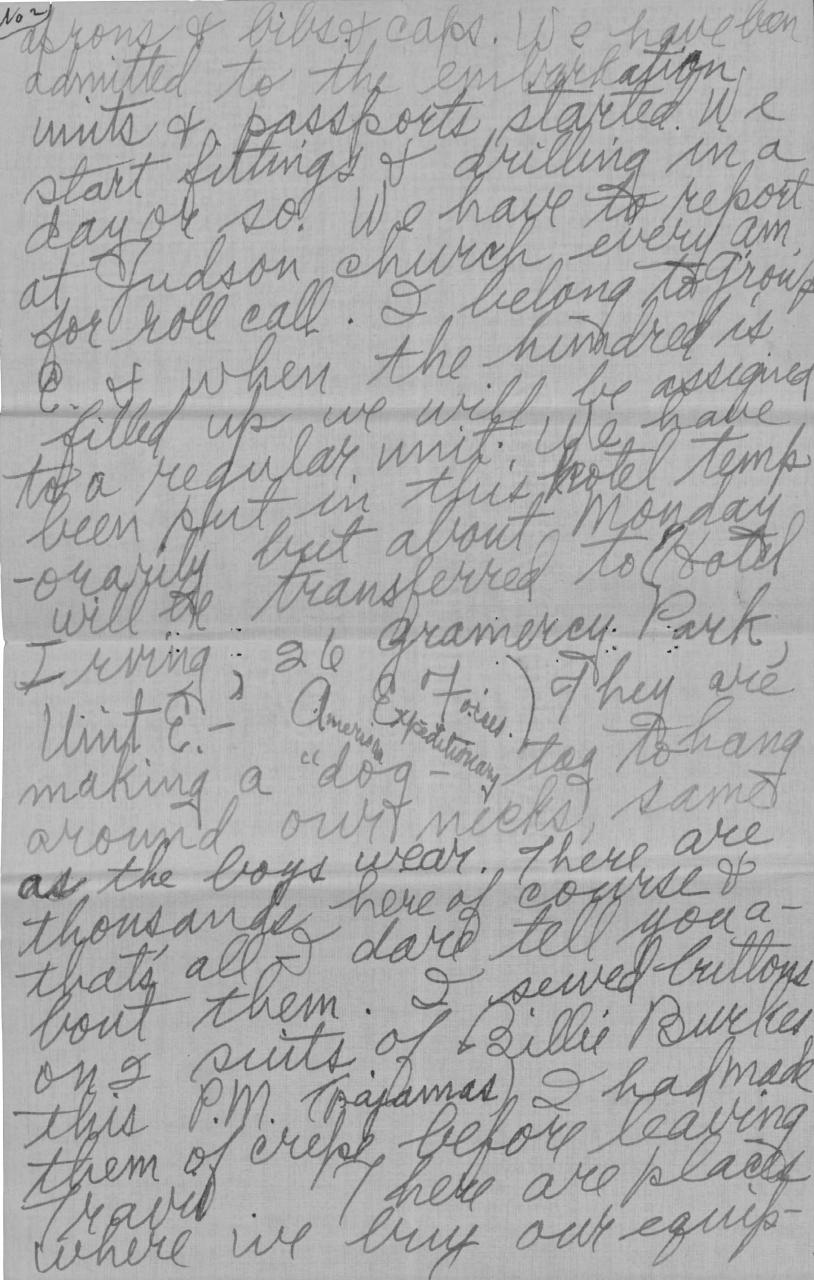 No 2
aprons & bibs & caps. We have been
admitted to the embarkation
units & passports started. We
start fittings & drilling in a
day or so. We have to report
at Judson church every am,
for roll call. I belong to group
E. & when the hundred is
filled up we will be assigned
to a regular unit. We have
been put in this hotel temp
-orarily but about Monday
will be transferred to Hotel
Irving, 26 Gramercy Park,
Unit E. - American Expeditionary Forces.) They are
making a "dog - tag to hang
around our necks, same
as the boys wear. There are
thousands here of course &
that's all I dare tell you a-
bout them. I sewed buttons
on 2 suits of Billie Burkes
this P.M. (Pajamas) I had made
them of crepe before leaving
Travis There are places
where we buy our equip-